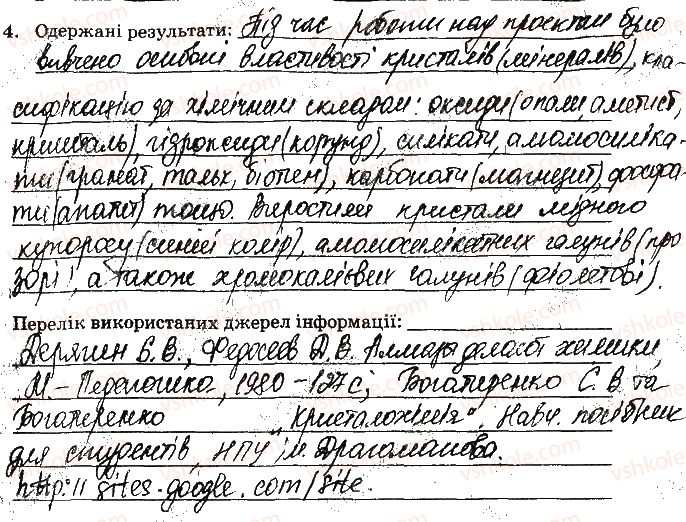 4. Одержані результати: Під час роботи над проектом було
вивчено особові властивості кристалів (мінералів), кла-
сифікацію за хімічним складом: оксиди (опали, аметист,
кришталь), гідроксиди (корунд), силікати, алюмосиліка-
ти (гранат, тальк, біотин), карбонати (магнезит), фосфа-
ти (апатит) тощо. Виростили кристали мідного
купоросу (синій колір), алюмосилікатних галунів (про
зорі), а також хромокалієвих галунів (фіолетові).
Перелік використаних джерел інформації:
Дерягин Б.В., Федосеев Д.В. Алмазы делают химики,
М. - Педагогика, 1980 - 127с; Богатиренко С.В. та
Богатиренко „Кристалохімія". Навч. посібник
для студентів, НПУ ім. Драгоманова.
http://sites.google.com/site.